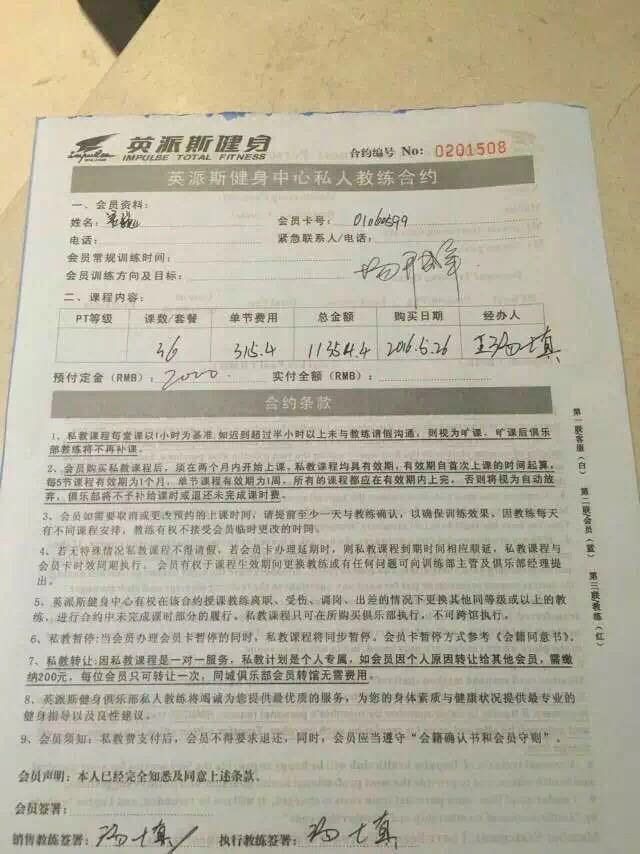 英派斯健身
Impulse
IMPULSE TOTAL FITNESS
合约编号 No: 0201508
英派斯健身中心私人教练合约
一、会员资料:
姓名: 会员卡号: 01060599
电话: 紧急联系人/电话:
会员常规训练时间:
会员训练方向及目标:
二、课程内容:
PT等级 课数/套餐 单节费用 总金额 购买日期 经办人
36 315.4 11354.4 2016.5.26
预付定金(RMB): 2000 实付全额(RMB):
合约条款
1、私教课程每堂课以1小时为基准,如迟到超过半小时以上未与教练请假沟通,则视为旷课,旷课后俱乐
部教练将不再补课。
2、会员购买私教课程后,须在两个月内开始上课,私教课程均具有效期,有效期自首次上课的时间起算,
每5节课程有效期为1个月,单节课程有效期为1周,所有的课程都应在有效期内上完,否则将视为自动放
弃,俱乐部将不予补给课时或退还未完成课时费。
3、会员如需要取消或更改预约的上课时间,请提前至少一天与教练确认,以确保训练效果,因教练每天
有不同课程安排,教练有权不接受会员临时更改的时间。
4、若无特殊情况私教课程不得请假,若会员卡办理延期时,则私教课程到期时间相应顺延,私教课程与
会员卡时效同期执行。会员有权于课程生效期间更换教练或有任何问题可向训练部主管及俱乐部经理提
出。
5、英派斯健身中心有权在该合约授课教练离职、受伤、调岗、出差的情况下更换其他同等级或以上的教
练,进行合约中未完成课时部分的履行。私教课程只可在所购买俱乐部执行,不可跨馆执行。
6、私教暂停:当会员办理会员卡暂停的同时,私教课程将同步暂停。会员卡暂停方式参考《会籍同意书》。
7、私教转让:因私教课程是一对一服务,私教计划是个人专属,如会员因个人原因转让给其他会员,需缴
纳200元,每位会员只可转让一次,同城俱乐部会员转馆无需费用。
8、英派斯健身俱乐部私人教练将竭诚为您提供最优质的服务,为您的身体素质与健康状况提供最专业的
健身指导以及良性建议。
9、会员须知:私教费支付后,会员不得要求退还,同时,会员应当遵守“会籍确认书和会员守则”。
会员声明:本人已经完全知悉及同意上述条款。
会员签署:
销售教练签署: 执行教练签署:
第一联客服(白) 第二联会员(蓝) 第三联教练(红)